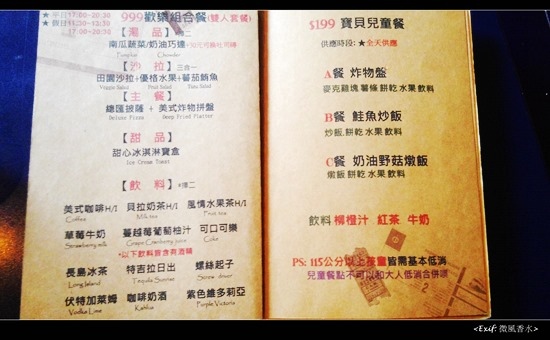 ★平日17:00~20:30
★假日11:30~13:30
17:00~20:30
999歡樂組合餐(雙人套餐)
【湯品】
南瓜蔬菜/奶油巧達
Pumpkin Chowder
【沙拉】三合一
田園沙拉+優格水果+蕃茄鮪魚
Veggie Salad Fruit Salad Tuna Salad
【主餐】
總匯披薩 + 美式炸物拼盤
Deluxe Pizza Deep Fried Platter
【甜品】
甜心冰淇淋寶盒
Ice Cream Toast
【飲料】*擇二
美式咖啡H/I 貝拉奶茶H/I 風情水果茶H/I
Coffee Milk tea Fruit tea
草莓牛奶 蔓越莓葡萄柚汁 可口可樂
Strawberry milk Grape Cranberry juice Coke
*以下飲料皆含有酒精
長島冰茶 特吉拉日出 螺絲起子
Long Island Tequila Sunrise Screw driver
伏特加萊姆 咖啡奶酒 紫色維多莉亞
Vodka Lime Kahlua Purple Victoria
$199 寶貝兒童餐
供應時段:★全天供應
A餐 炸物盤
麥克雞塊 薯條 餅乾 水果 飲料
B餐 鮭魚炒飯
炒飯 餅乾 水果 飲料
C餐 奶油野菇燉飯
燉飯 餅乾 水果 飲料
飲料 柳橙汁 紅茶 牛奶
PS: 115公分以上孩童皆需基本低消
兒童餐點不可以和大人低消合併唷
<Exif:微風香水>